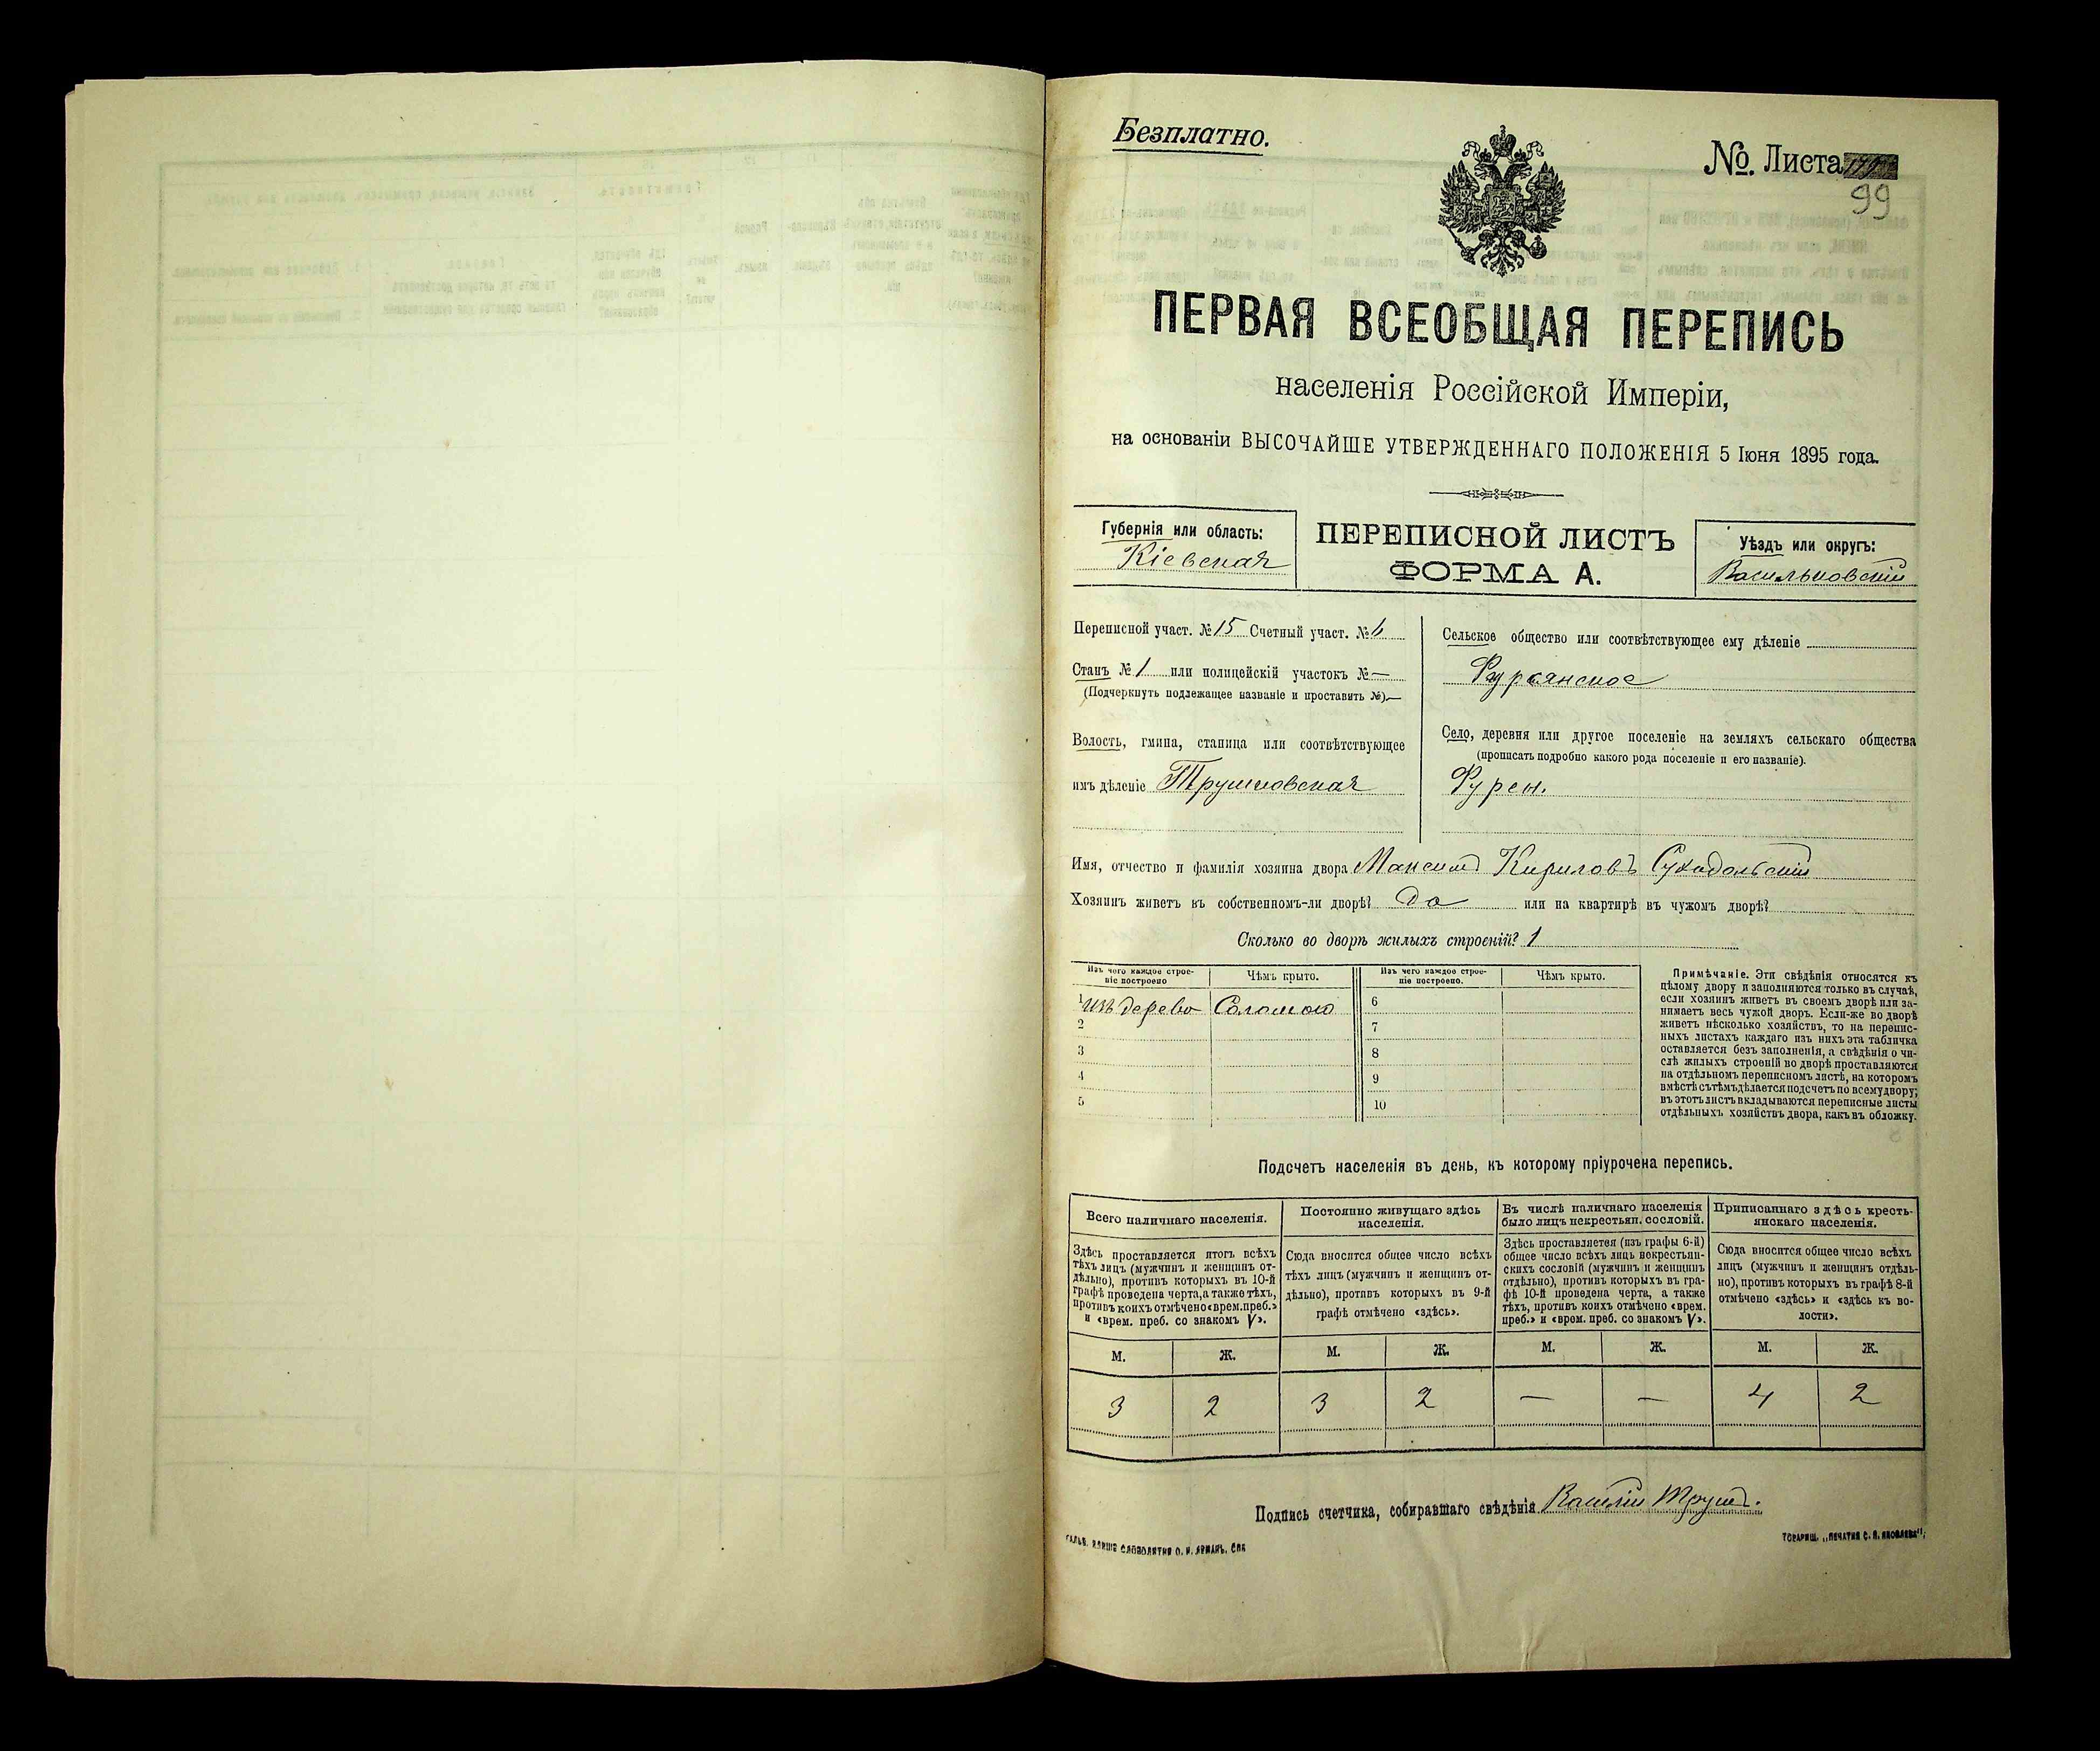 Безплатно.
№. Листа
99
ПЕРВАЯ ВСЕОБЩАЯ ПЕРЕПИСЬ
населенія Россійской Имперіи,
на основаніи ВЫСОЧАЙШЕ УТВЕРЖДЕННАГО ПОЛОЖЕНІЯ 5 Іюня 1895 года.
Губернія или область:
Кіевская
ПЕРЕПИСНОЙ ЛИСТЪ
ФОРМА А.
Уѣздъ или округъ:
Васильковскій
Переписной участ. № 15 Счетный участ. № 6
Станъ № 1 или полицейскій участокъ № —
(Подчеркнуть подлежащее названіе и проставить №).—
Волость, гмина, станица или соотвѣтствующее
имъ дѣленіе Трушковская
Сельское общество или соотвѣтствующее ему дѣленіе
Фурсянское
Село, деревня или другое поселеніе на земляхъ сельскаго общества
(прописать подробно какого рода поселеніе и его названіе).
Имя, отчество и фамилія хозяина двора Максимъ Кириловъ Суходольскій
Хозяинъ живетъ въ собственномъ-ли дворѣ? да или на квартирѣ въ чужомъ дворѣ?
Сколько во дворѣ жилыхъ строеній? 1
Изъ чего каждое строе-
ніе построено
Чѣмъ крыто.
Изъ чего каждое строе-
ніе построено.
Чѣмъ крыто.
1 изъ дерева Соломою 6
2 7
3 8
4 9
5 10
Примѣчаніе. Эти свѣдѣнія относятся къ
цѣлому двору и заполняются только въ случаѣ,
если хозяинъ живетъ въ своемъ дворѣ или за-
нимаетъ весь чужой дворъ. Если-же во дворѣ
живетъ нѣсколько хозяйствъ, то на перепис-
ныхъ листахъ каждаго изъ нихъ эта табличка
оставляется безъ заполненія, а свѣдѣнія о чи-
слѣ жилыхъ строеній во дворѣ проставляются
на отдѣльномъ переписномъ листѣ, на которомъ
вмѣстѣ съ тѣмъ дѣлается подсчетъ по всему двору;
въ этотъ листъ вкладываются переписные листы
отдѣльныхъ хозяйствъ двора, какъ въ обложку.
Подсчетъ населенія въ день, къ которому пріурочена перепись.
Всего наличнаго населенія.
Здѣсь проставляется итогъ всѣхъ
тѣхъ лицъ (мужчинъ и женщинъ от-
дѣльно), противъ которыхъ въ 10-й
графѣ проведена черта, а также тѣхъ,
противъ коихъ отмѣчено «врем. преб.»
и «врем. преб. со знакомъ V».
Постоянно живущаго здѣсь
населенія.
Сюда вносится общее число всѣхъ
тѣхъ лицъ (мужчинъ и женщинъ от-
дѣльно), противъ которыхъ въ 9-й
графѣ отмѣчено «здѣсь».
Въ числѣ наличнаго населенія
было лицъ некрестьян. сословій.
Здѣсь проставляется (изъ графы 6-й)
общее число всѣхъ лицъ некрестьян-
скихъ сословій (мужчинъ и женщинъ
отдѣльно), противъ которыхъ въ гра-
фѣ 10-й проведена черта, а также
тѣхъ, противъ коихъ отмѣчено «врем.
преб.» и «врем. преб. со знакомъ V».
Приписаннаго здѣсь кресть-
янскаго населенія.
Сюда вносится общее число всѣхъ
лицъ (мужчинъ и женщинъ отдѣль-
но), противъ которыхъ въ графѣ 8-й
отмѣчено «здѣсь» и «здѣсь къ во-
лости».
М. Ж. М. Ж. М. Ж. М. Ж.
3 2 3 2 — — 4 2
Подпись счетчика, собиравшаго свѣдѣнія Василій Трушъ.
ТОВАРИЩ. „ПЕЧАТНЯ С. П. ЯКОВЛЕВА“;